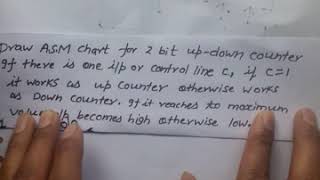 Draw ASM chart for 2 bit up-down counter
If there is one i/p or control line C, if C=1
it works as up counter otherwise works
as Down counter. If it reaches to maximum
value becomes high otherwise low.